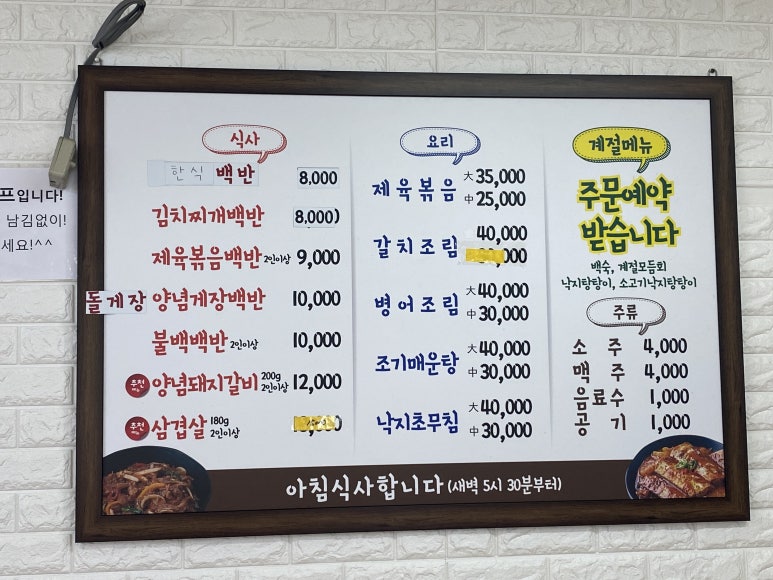 프입니다!
남김없이!
세요!^^
식사
한식 백반 8,000
김치찌개백반 8,000)
제육볶음백반 2인이상 9,000
돌게장 양념게장백반 10,000
불백백반 2인이상 10,000
추천 양념돼지갈비 200g 2인이상 12,000
추천 삼겹살 180g 2인이상
요리
제육볶음 大 35,000
中 25,000
갈치조림 40,000
병어조림 大 40,000
中 30,000
조기매운탕 大 40,000
中 30,000
낙지초무침 大 40,000
中 30,000
계절메뉴
주문예약
받습니다
백숙, 계절모듬회
낙지탕탕이, 소고기낙지탕탕이
주류
소주 4,000
맥주 4,000
음료수 1,000
공기 1,000
아침식사합니다 (새벽 5시 30분부터)